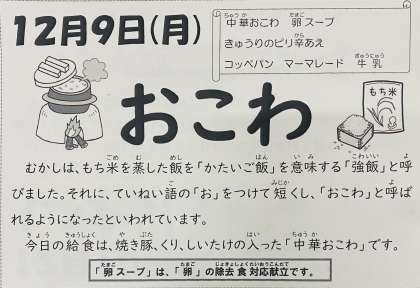 12月9日(月)
中華おこわ　卵スープ
きゅうりのピリ辛あえ
コッペパン　マーマレード　牛乳
おこわ
もち米
むかしは、もち米を蒸した飯を「かたいご飯」を意味する「強飯」と呼
びました。それに、ていねい語の「お」をつけて短くし、「おこわ」と呼ば
れるようになったといわれています。
今日の給食は、焼き豚、くり、しいたけの入った「中華おこわ」です。
「卵スープ」は、「卵」の除去食対応献立です。